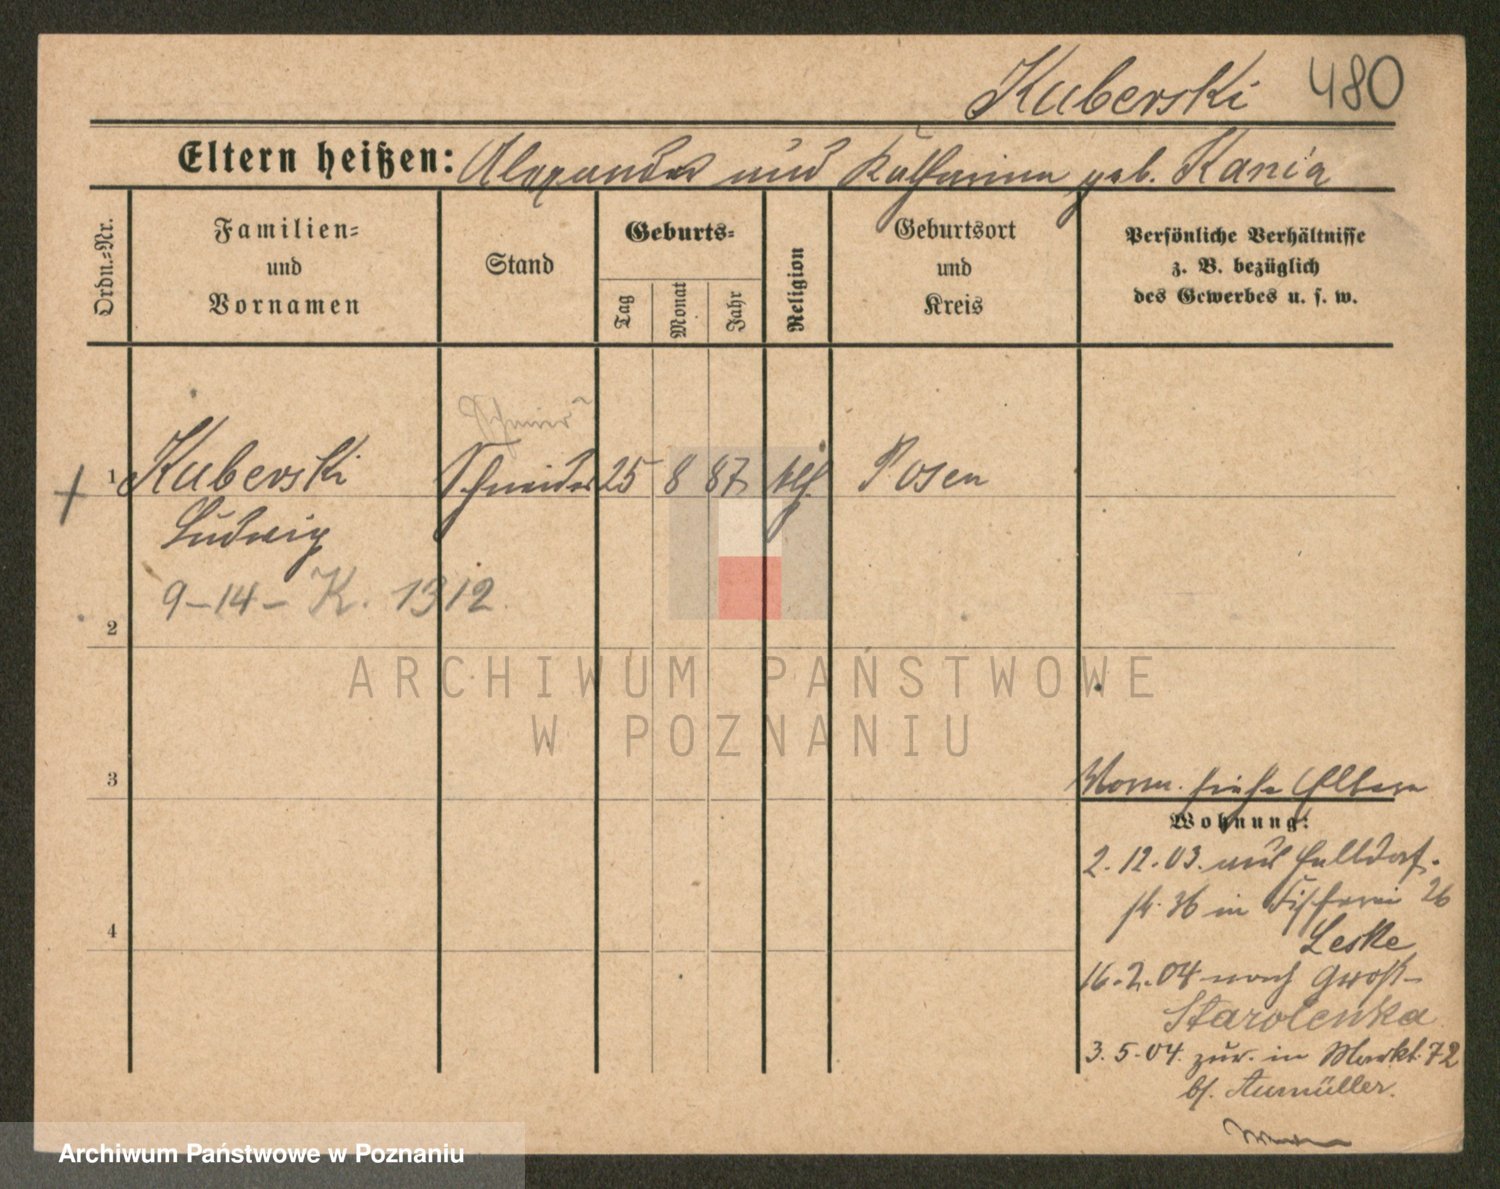 Kuberski 480
Eltern heißen: Alexander und Katharina geb. Kania
Ordn.=Nr.
Familien=
und
Vornamen
Stand
Geburts=
Tag
Monat
Jahr
Religion
Geburtsort
und
Kreis
Persönliche Verhältnisse
z. B. bezüglich
des Gewerbes u. s. w.
1 Kuberski Schneider 25 8 87 Posen
Ludwig
9-14- K. 1312
2
ARCHIWUM PAŃSTWOWE
W POZNANIU
3
siehe
Wohnung:
2.12.03. aus Halldorf-
str. 36 in Fischerei 26
Leske
4
16.2.04 nach Groß-
Starolenka
3.5.04. zur. in Markt 72
bf. Aumüller.
Archiwum Państwowe w Poznaniu